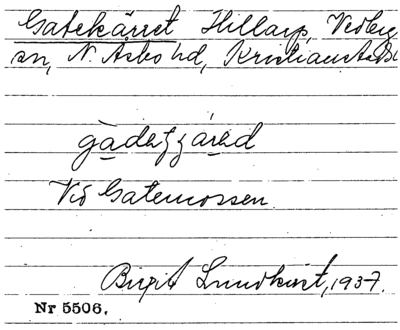 Gatekärret Hillarp, Vedby
sn, N. Åsbo hd, Kristianstads l
Vid Gatemossen.
Birgit Lundkvist, 1937.
Nr 5506.